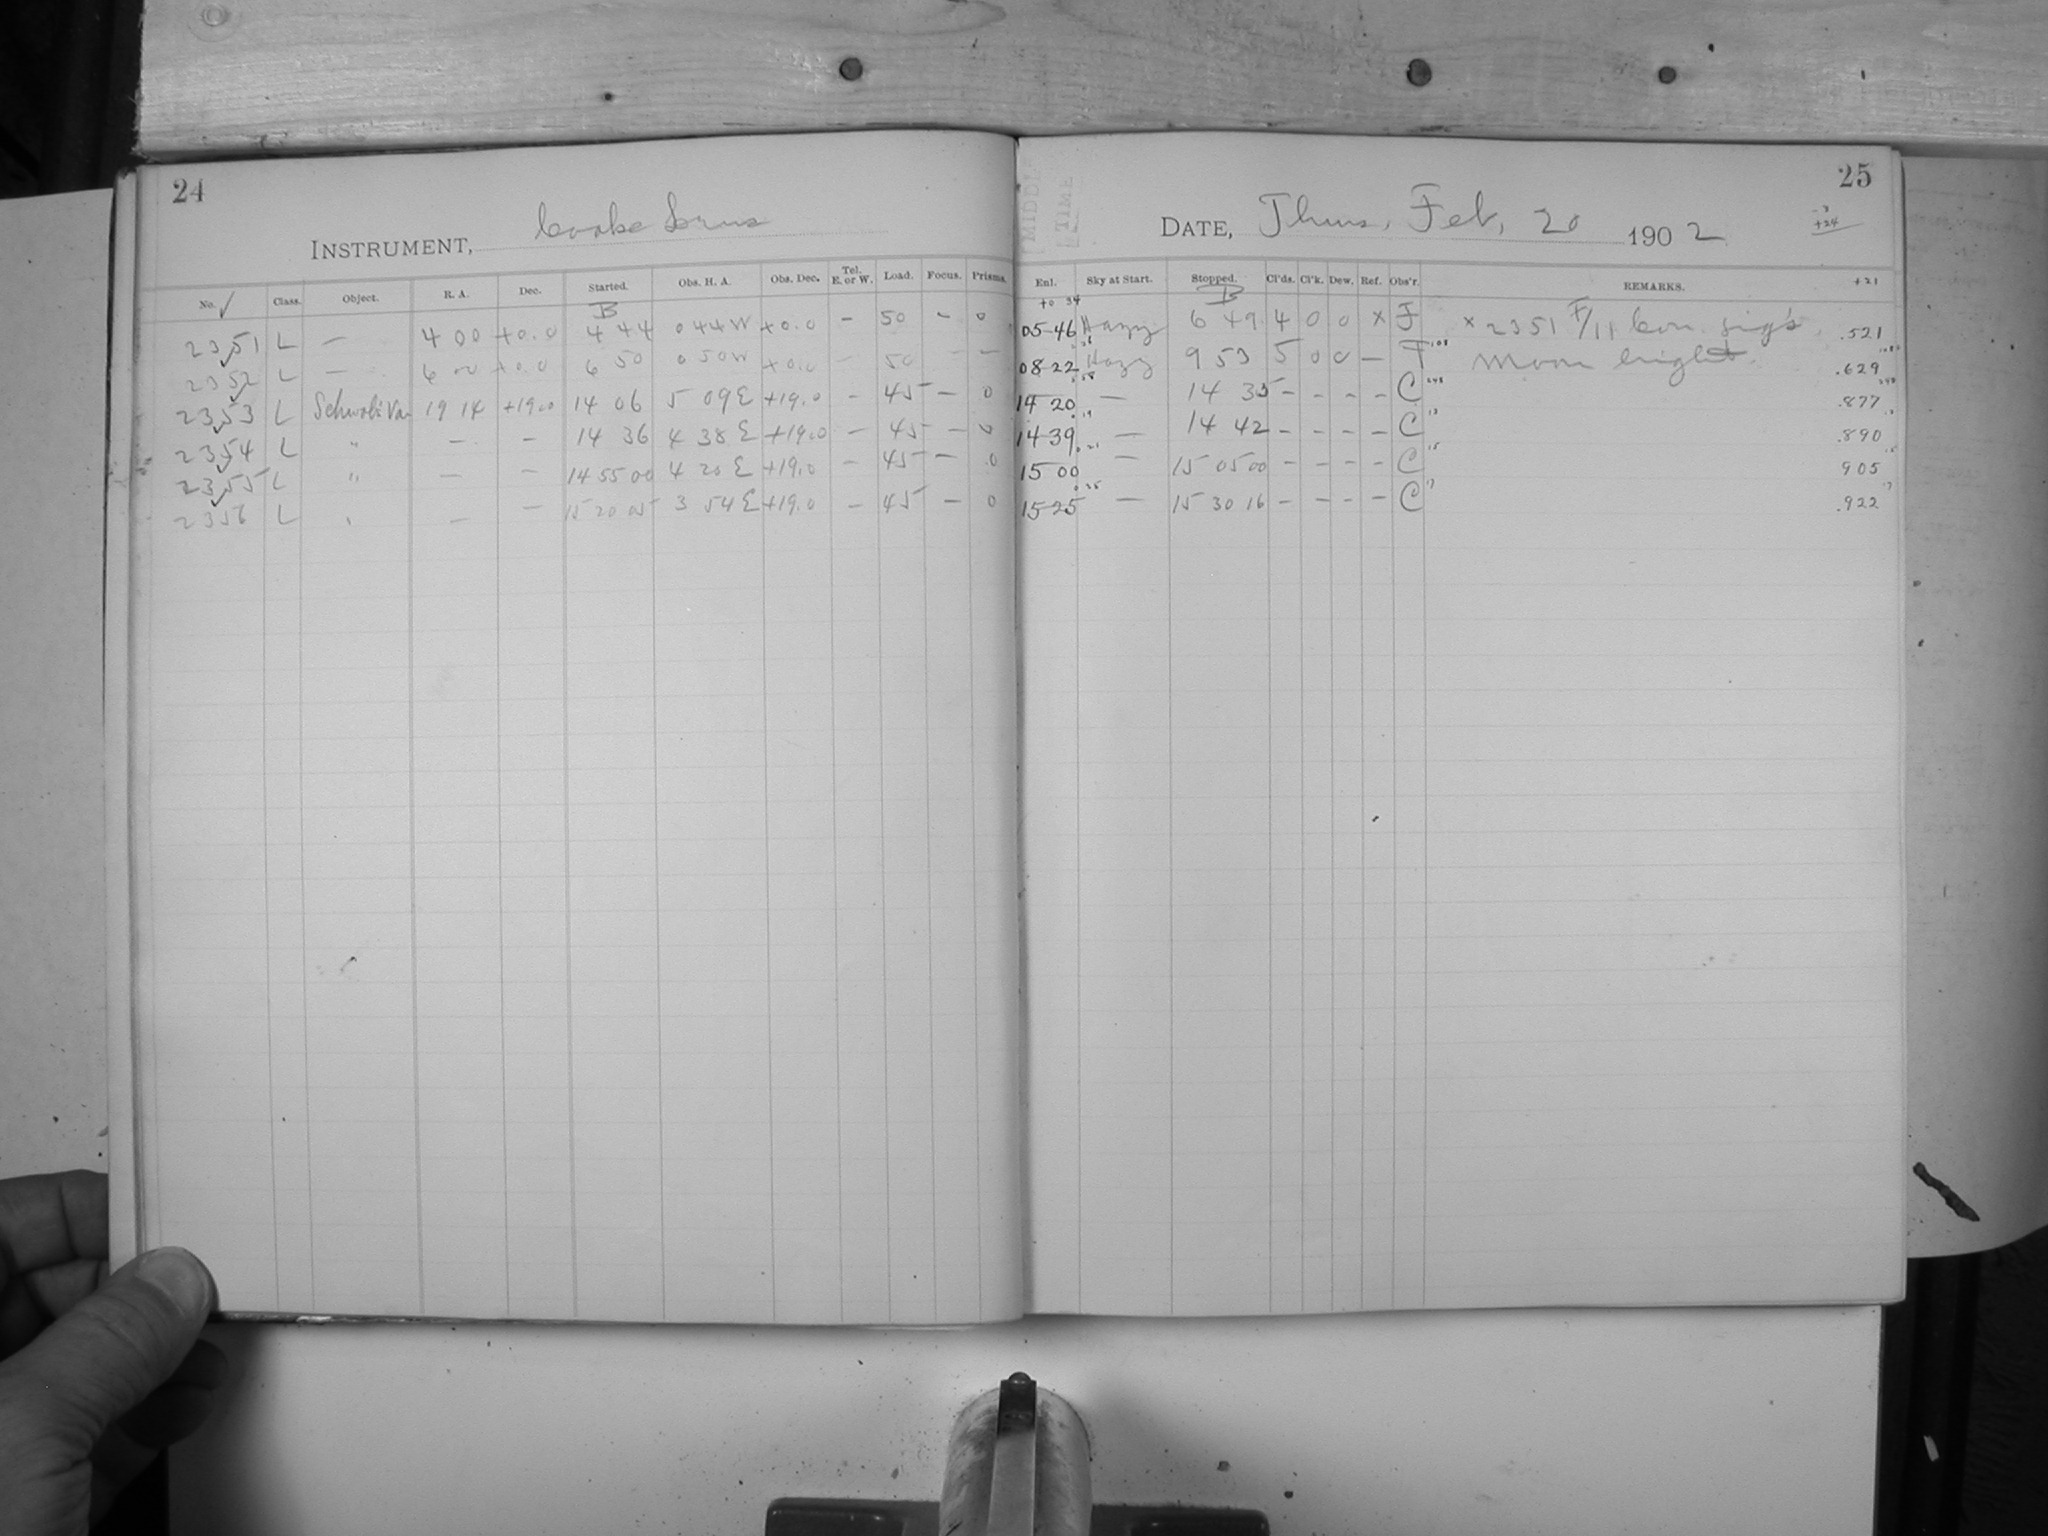 24
INSTRUMENT, Cooke Lens
No. ✓ Class. Object. R. A. Dec. Started. Obs. H. A. Obs. Dec. Tel. E. or W. Load. Focus. Prisms.
B
2351 L — 4 00 +0.0 4 44 0 44 W +0.0 — 50 — 0
2352 L — 6 00 +0.0 6 50 0 50 W +0.0 — 50 — —
2353 L 19 14 +19.0 14 06 5 09 E +19.0 — 45 — 0
2354 L " — — 14 36 4 38 E +19.0 — 45 — 0
2355 L " — — 14 55 00 4 20 E +19.0 — 45 — 0
2356 L " — — 15 20 05 3 54 E +19.0 — 45 — 0
25
MIDDLE TIME
DATE, Thurs, Feb, 20 1902
+24
Enl. Sky at Start. Stopped. Cl'ds. Cl'k. Dew. Ref. Obs'r. REMARKS. +21
+0 34 B
05-46 Hazy 6 49 4 0 0 × F × 2351 F/11 .521
08-22 Hazy 9 53 5 0 0 — F 108 Moon bright .629
14 20 — 14 35 — — — — C 248 .877
14-39 — 14 42 — — — — C 13 .890
15 00 — 15 05 00 — — — — C 15 905
15-25 — 15 30 16 — — — — C 17 .922